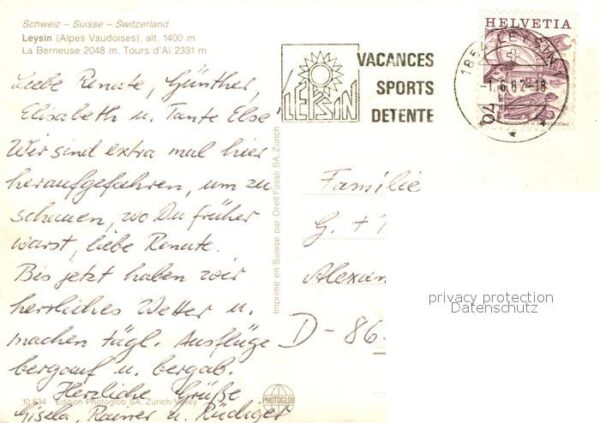 Schweiz – Suisse – Switzerland
Leysin (Alpes Vaudoises), alt. 1400 m
La Berneuse 2048 m. Tours d'Aï 2331 m
Liebe Renate, Günther,
Elisabeth u. Tante Else!
Wir sind extra mal hier
heraufgefahren, um zu
schauen, wo Du früher
warst, liebe Renate.
Bis jetzt haben wir
herrliches Wetter u.
machen tägl. Ausflüge
bergauf u. bergab.
Herzliche Grüße
Gisela, Rainer u. Rüdiger
10 634 Edition Photoglob SA, Zurich/Vevey
PHOTOGLOB
Imprimé en Suisse par Orell Füssli SA, Zurich
LEYSIN
VACANCES
SPORTS
DETENTE
HELVETIA
1854 LEYSIN 1
-1.6.82-18
70
Familie
G. +
Alexan
D-86
privacy protection
Datenschutz